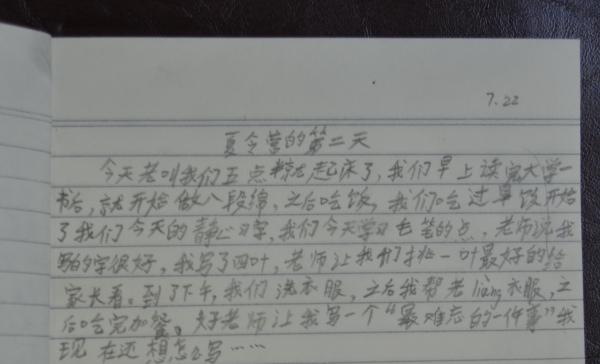 7.22
夏令营的第二天
今天老叫我们五点就起床了,我们早上读完大学一
书后,就开始做八段锦,之后吃饭,我们吃过早饭开始
了我们今天的静心习字,我们今天学习毛笔的点,老师说我
写的字很好,我写了四叶,老师让我们挑一叶最好的给
家长看。到了下午,我们洗衣服,之后我帮老liang衣服,之
后吃完加餐,好老师让我写一个“最难忘的一件事”我
现在还想怎么写……